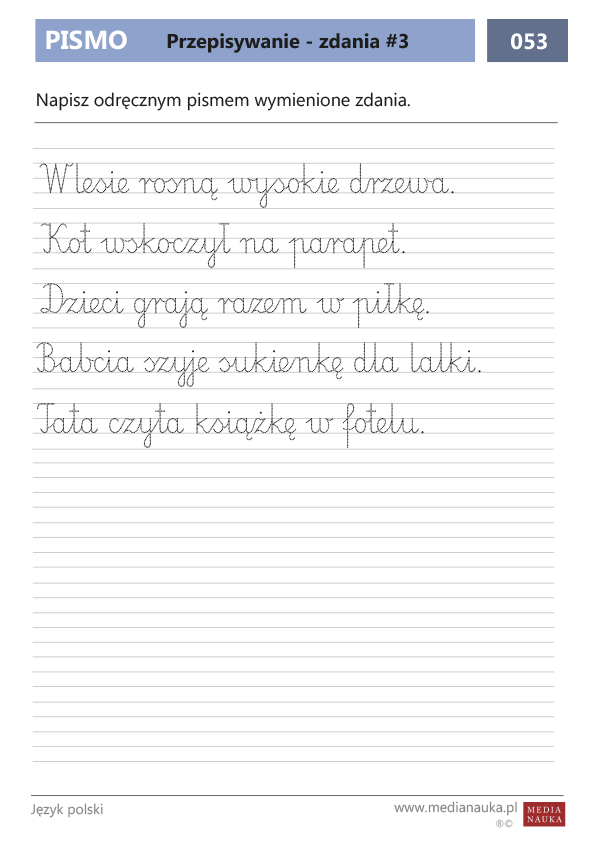 PISMO Przepisywanie - zdania #3 053
Napisz odręcznym pismem wymienione zdania.
W lesie rosną wysokie drzewa.
Kot wskoczył na parapet.
Dzieci grają razem w piłkę.
Babcia szyje sukienkę dla lalki.
Tata czyta książkę w fotelu.
Język polski www.medianauka.pl MEDIA NAUKA
®©